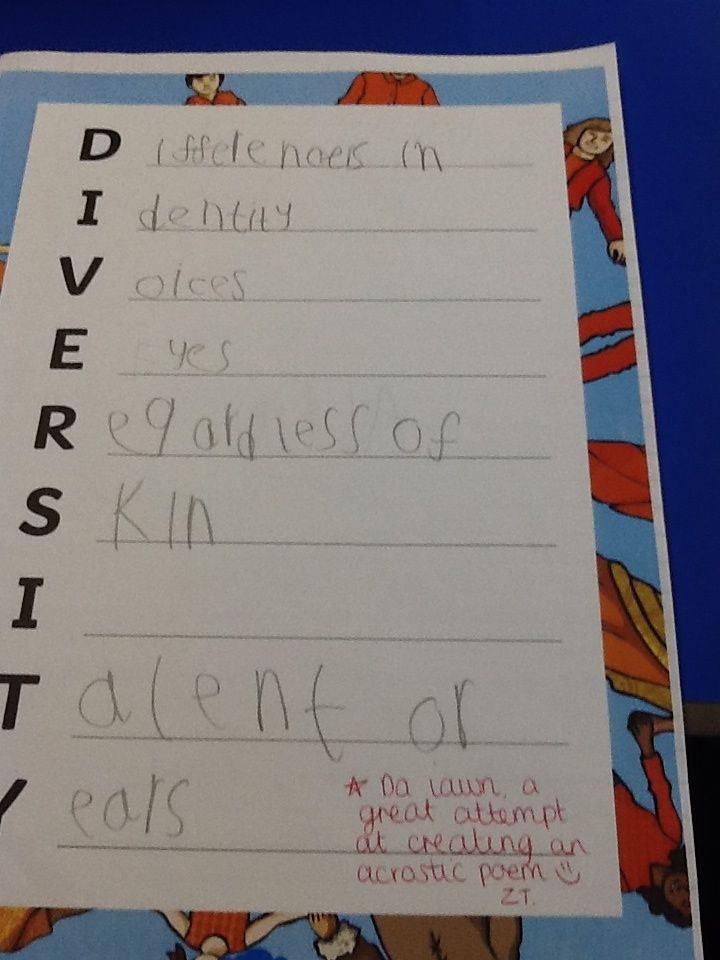 D ifferences in
I dentity
V oices
E yes
R egardless of
S kin
I
T alent or
Y ears
* Da iawn, a
great attempt
at creating an
acrostic poem ☺
ZT.